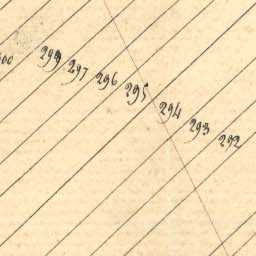 299 297 296 295 294 293 292